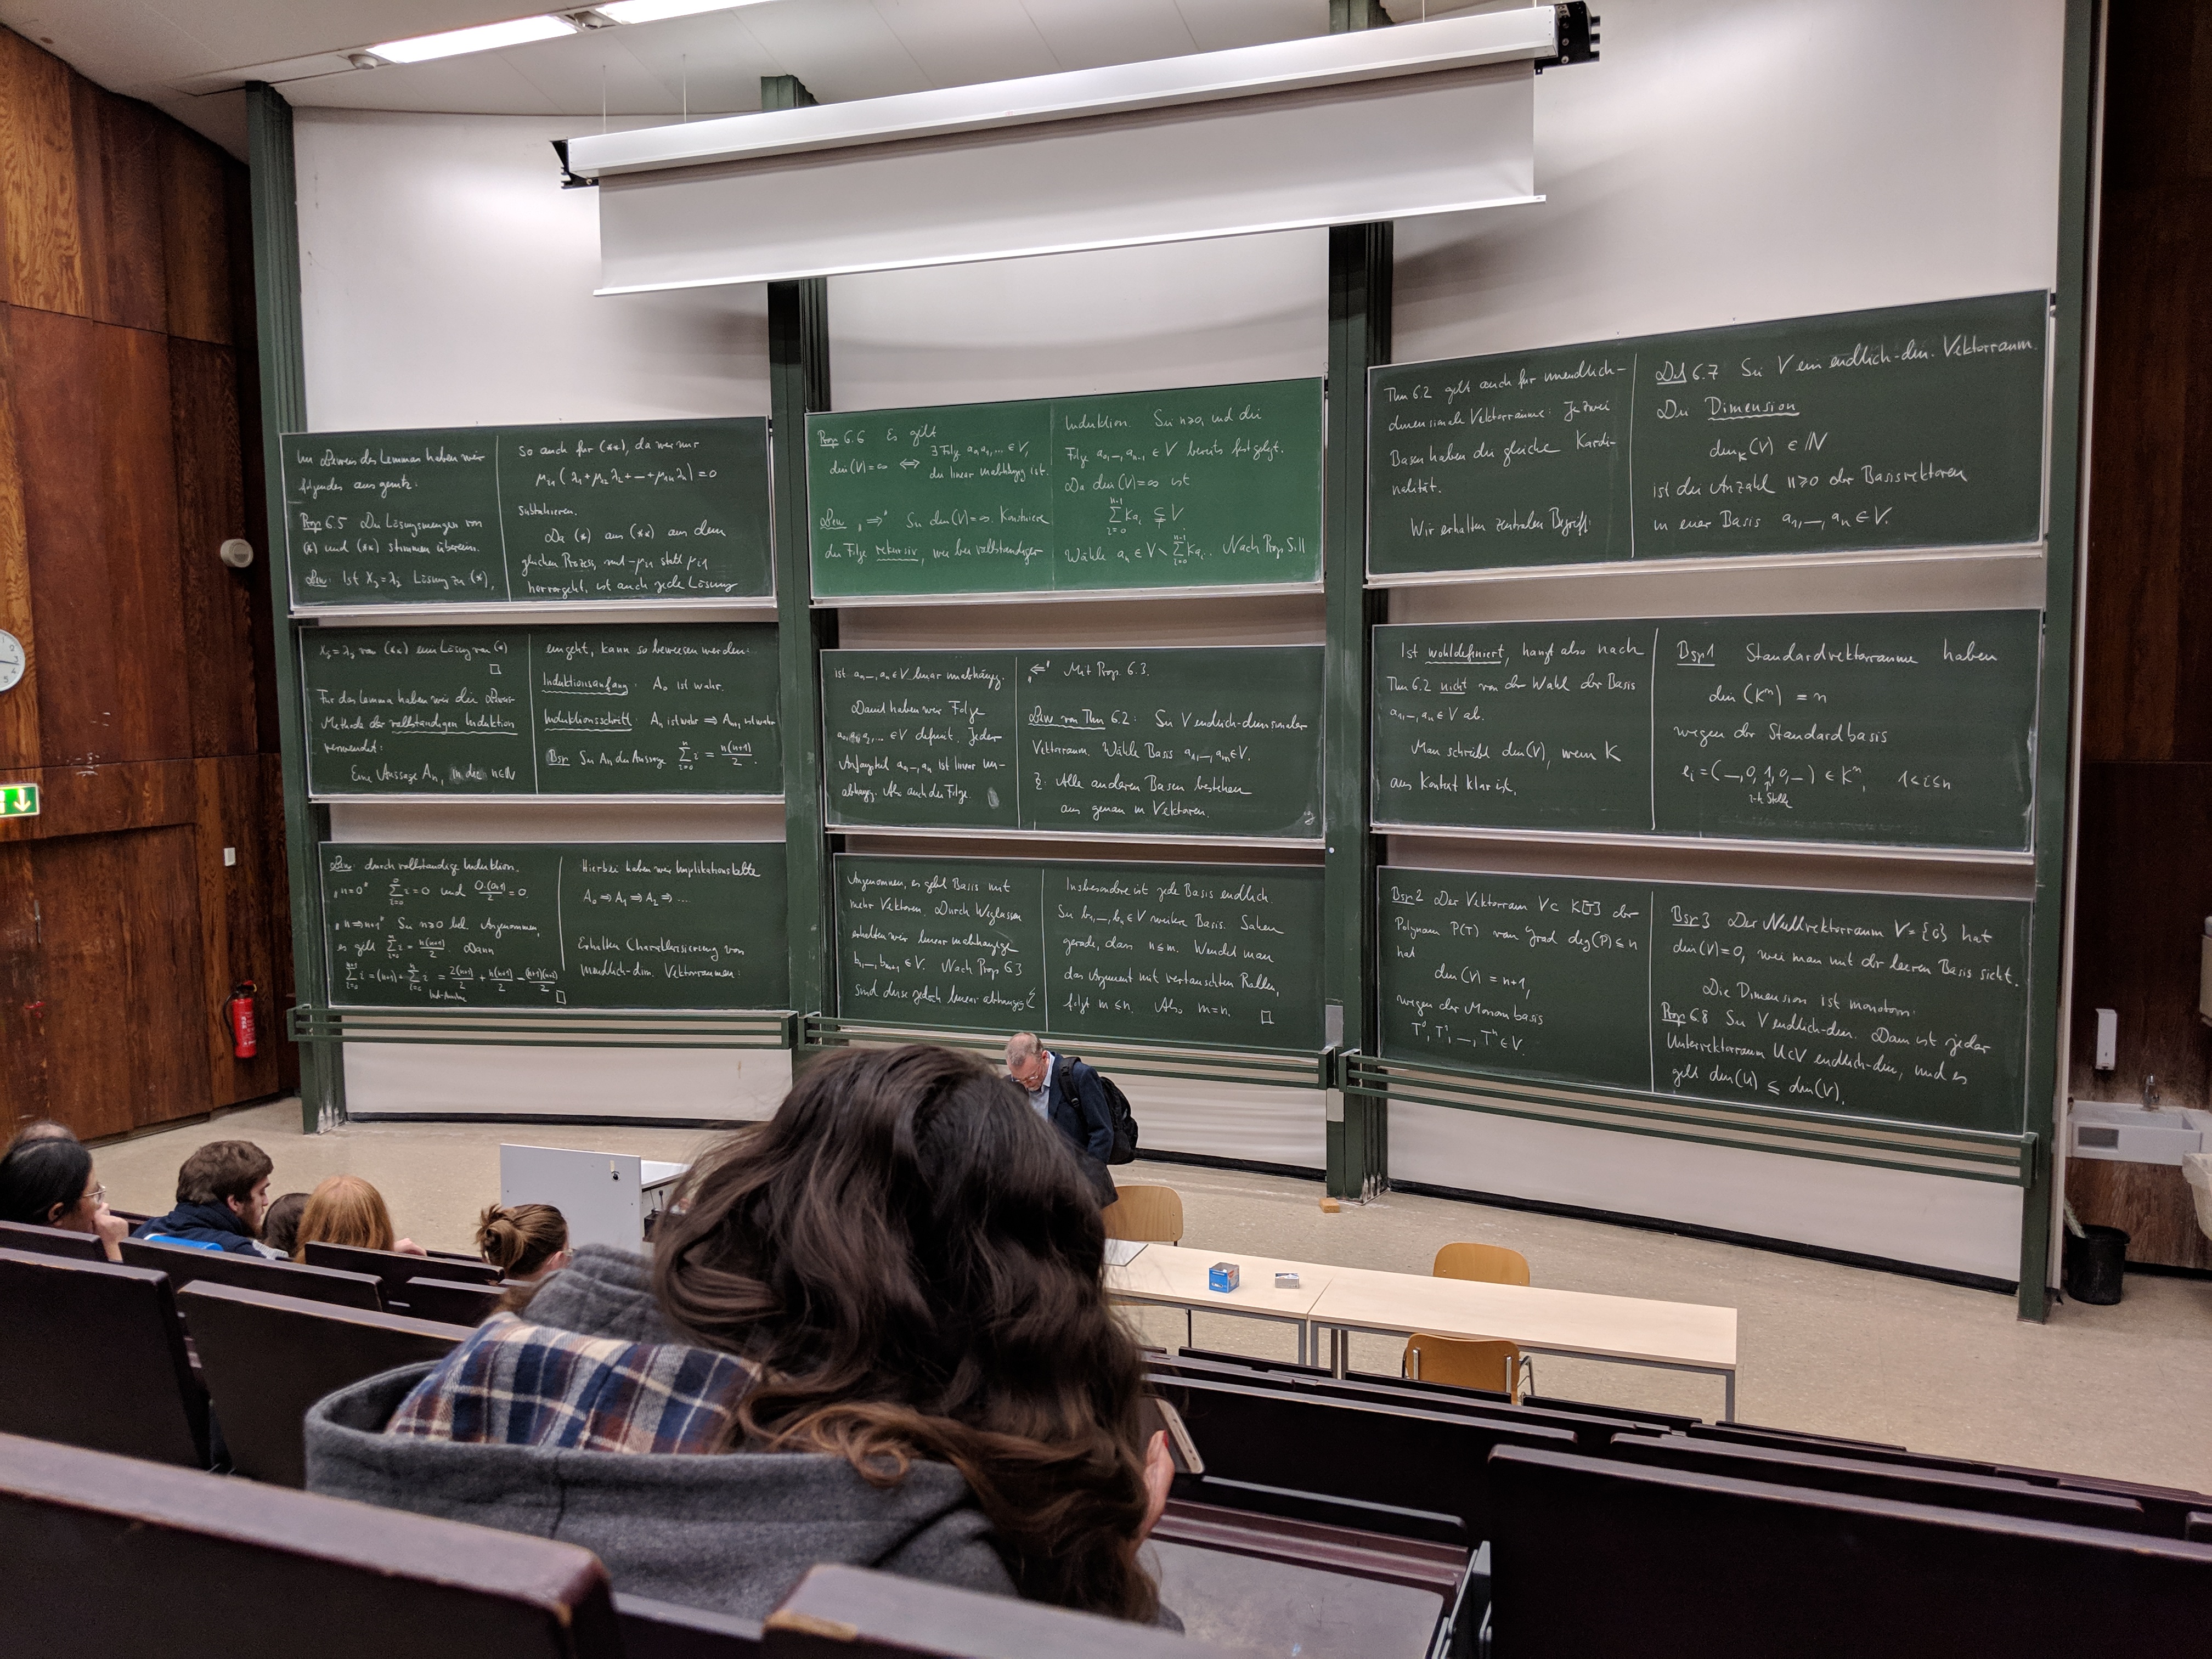 Im Beweis des Lemmas haben wir
folgendes ausgenutzt:
Prop 6.5 Die Lösungsmengen von
(*) und (**) stimmen überein.
Bew: Ist x_j = λ_j Lösung zu (*),
so auch für (**), da wir nur
μ_i1 (λ_1 + μ_12 λ_2 + — + μ_1n λ_n) = 0
subtrahieren.
Da (*) aus (**) aus dem
gleichen Prozess, mit -μ_i1 statt μ_i1
hervorgeht, ist auch jede Lösung
x_j = λ_j von (**) eine Lösung von (*)
□
Für das Lemma haben wir die Beweis-
Methode der vollständigen Induktion
verwendet:
Eine Aussage A_n, in die n∈ℕ
eingeht, kann so bewiesen werden:
Induktionsanfang: A_0 ist wahr.
Induktionsschritt: A_n ist wahr ⟹ A_n+1 ist wahr
Bsp Sei A_n die Aussage Σ_{i=0}^{n} i = n(n+1)/2.
Bew: durch vollständige Induktion.
„n=0" Σ_{i=0}^{0} i = 0 und 0·(0+1)/2 = 0.
„n ⟹ n+1" Sei n≥0 bel. Angenommen,
es gilt Σ_{i=0}^{n} i = n(n+1)/2. Dann
Σ_{i=0}^{n+1} i = (n+1) + Σ_{i=0}^{n} i = 2(n+1)/2 + n(n+1)/2 = (n+1)(n+2)/2
Ind-Annahme
□
Hierbei haben wir Implikationskette
A_0 ⟹ A_1 ⟹ A_2 ⟹ ...
Erhalten Charakterisierung von
unendlich-dim. Vektorräumen:
Prop 6.6 Es gilt
dim(V) = ∞ ⟺ ∃ Folge a_0, a_1, ... ∈ V,
die linear unabhängig ist.
Bew „⟹" Sei dim(V) = ∞. Konstruiere
die Folge rekursiv, wie bei vollständiger
Induktion. Sei n≥0, und die
Folge a_0, —, a_n-1 ∈ V bereits festgelegt.
Da dim(V) = ∞ ist
Σ_{i=0}^{n-1} K a_i ⊊ V
Wähle a_n ∈ V \ Σ_{i=0}^{n-1} K a_i. Nach Prop 5.11
ist a_0, —, a_n ∈ V linear unabhängig.
Damit haben wir Folge
a_0, a_1, a_2, ... ∈ V definiert. Jeder
Anfangsteil a_0, —, a_n ist linear un-
abhängig. Also auch die Folge.
„⟸" Mit Prop. 6.3.
Bew von Thm 6.2: Sei V endlich-dimensionaler
Vektorraum. Wähle Basis a_1, —, a_m ∈ V.
Z: Alle anderen Basen bestehen
aus genau m Vektoren.
Angenommen, es gibt Basis mit
mehr Vektoren. Durch Weglassen
erhalten wir linear unabhängige
b_1, —, b_m+1 ∈ V. Nach Prop 6.3
sind diese jedoch linear abhängig ↯
Insbesondere ist jede Basis endlich.
Sei b_1, —, b_n ∈ V weitere Basis. Sahen
gerade, dass n ≤ m. Wendet man
das Argument mit vertauschten Rollen,
folgt m ≤ n. Also m = n.
□
Thm 6.2 gilt auch für unendlich-
dimensionale Vektorräume: Je zwei
Basen haben die gleiche Kardi-
nalität.
Wir erhalten zentralen Begriff:
Def 6.7 Sei V ein endlich-dim. Vektorraum.
Die Dimension
dim_K(V) ∈ ℕ
ist die Anzahl n≥0 der Basisvektoren
in einer Basis a_1, —, a_n ∈ V.
Ist wohldefiniert, hängt also nach
Thm 6.2 nicht von der Wahl der Basis
a_1, —, a_n ∈ V ab.
Man schreibt dim(V), wenn K
aus Kontext klar ist.
Bsp 1 Standardvektorräume haben
dim(K^n) = n
wegen der Standardbasis
e_i = (—, 0, 1, 0, —) ∈ K^n, 1 ≤ i ≤ n
i-te Stelle
Bsp 2 Der Vektorraum V ⊂ K[T] der
Polynom P(T) von Grad deg(P) ≤ n
hat
dim(V) = n+1,
wegen der Monombasis
T^0, T^1, —, T^n ∈ V.
Bsp 3 Der Nullvektorraum V = {0} hat
dim(V) = 0, wie man mit der leeren Basis sieht.
Die Dimension ist monoton:
Prop 6.8 Sei V endlich-dim. Dann ist jeder
Untervektorraum U⊂V endlich-dim, und es
gilt dim(U) ≤ dim(V).